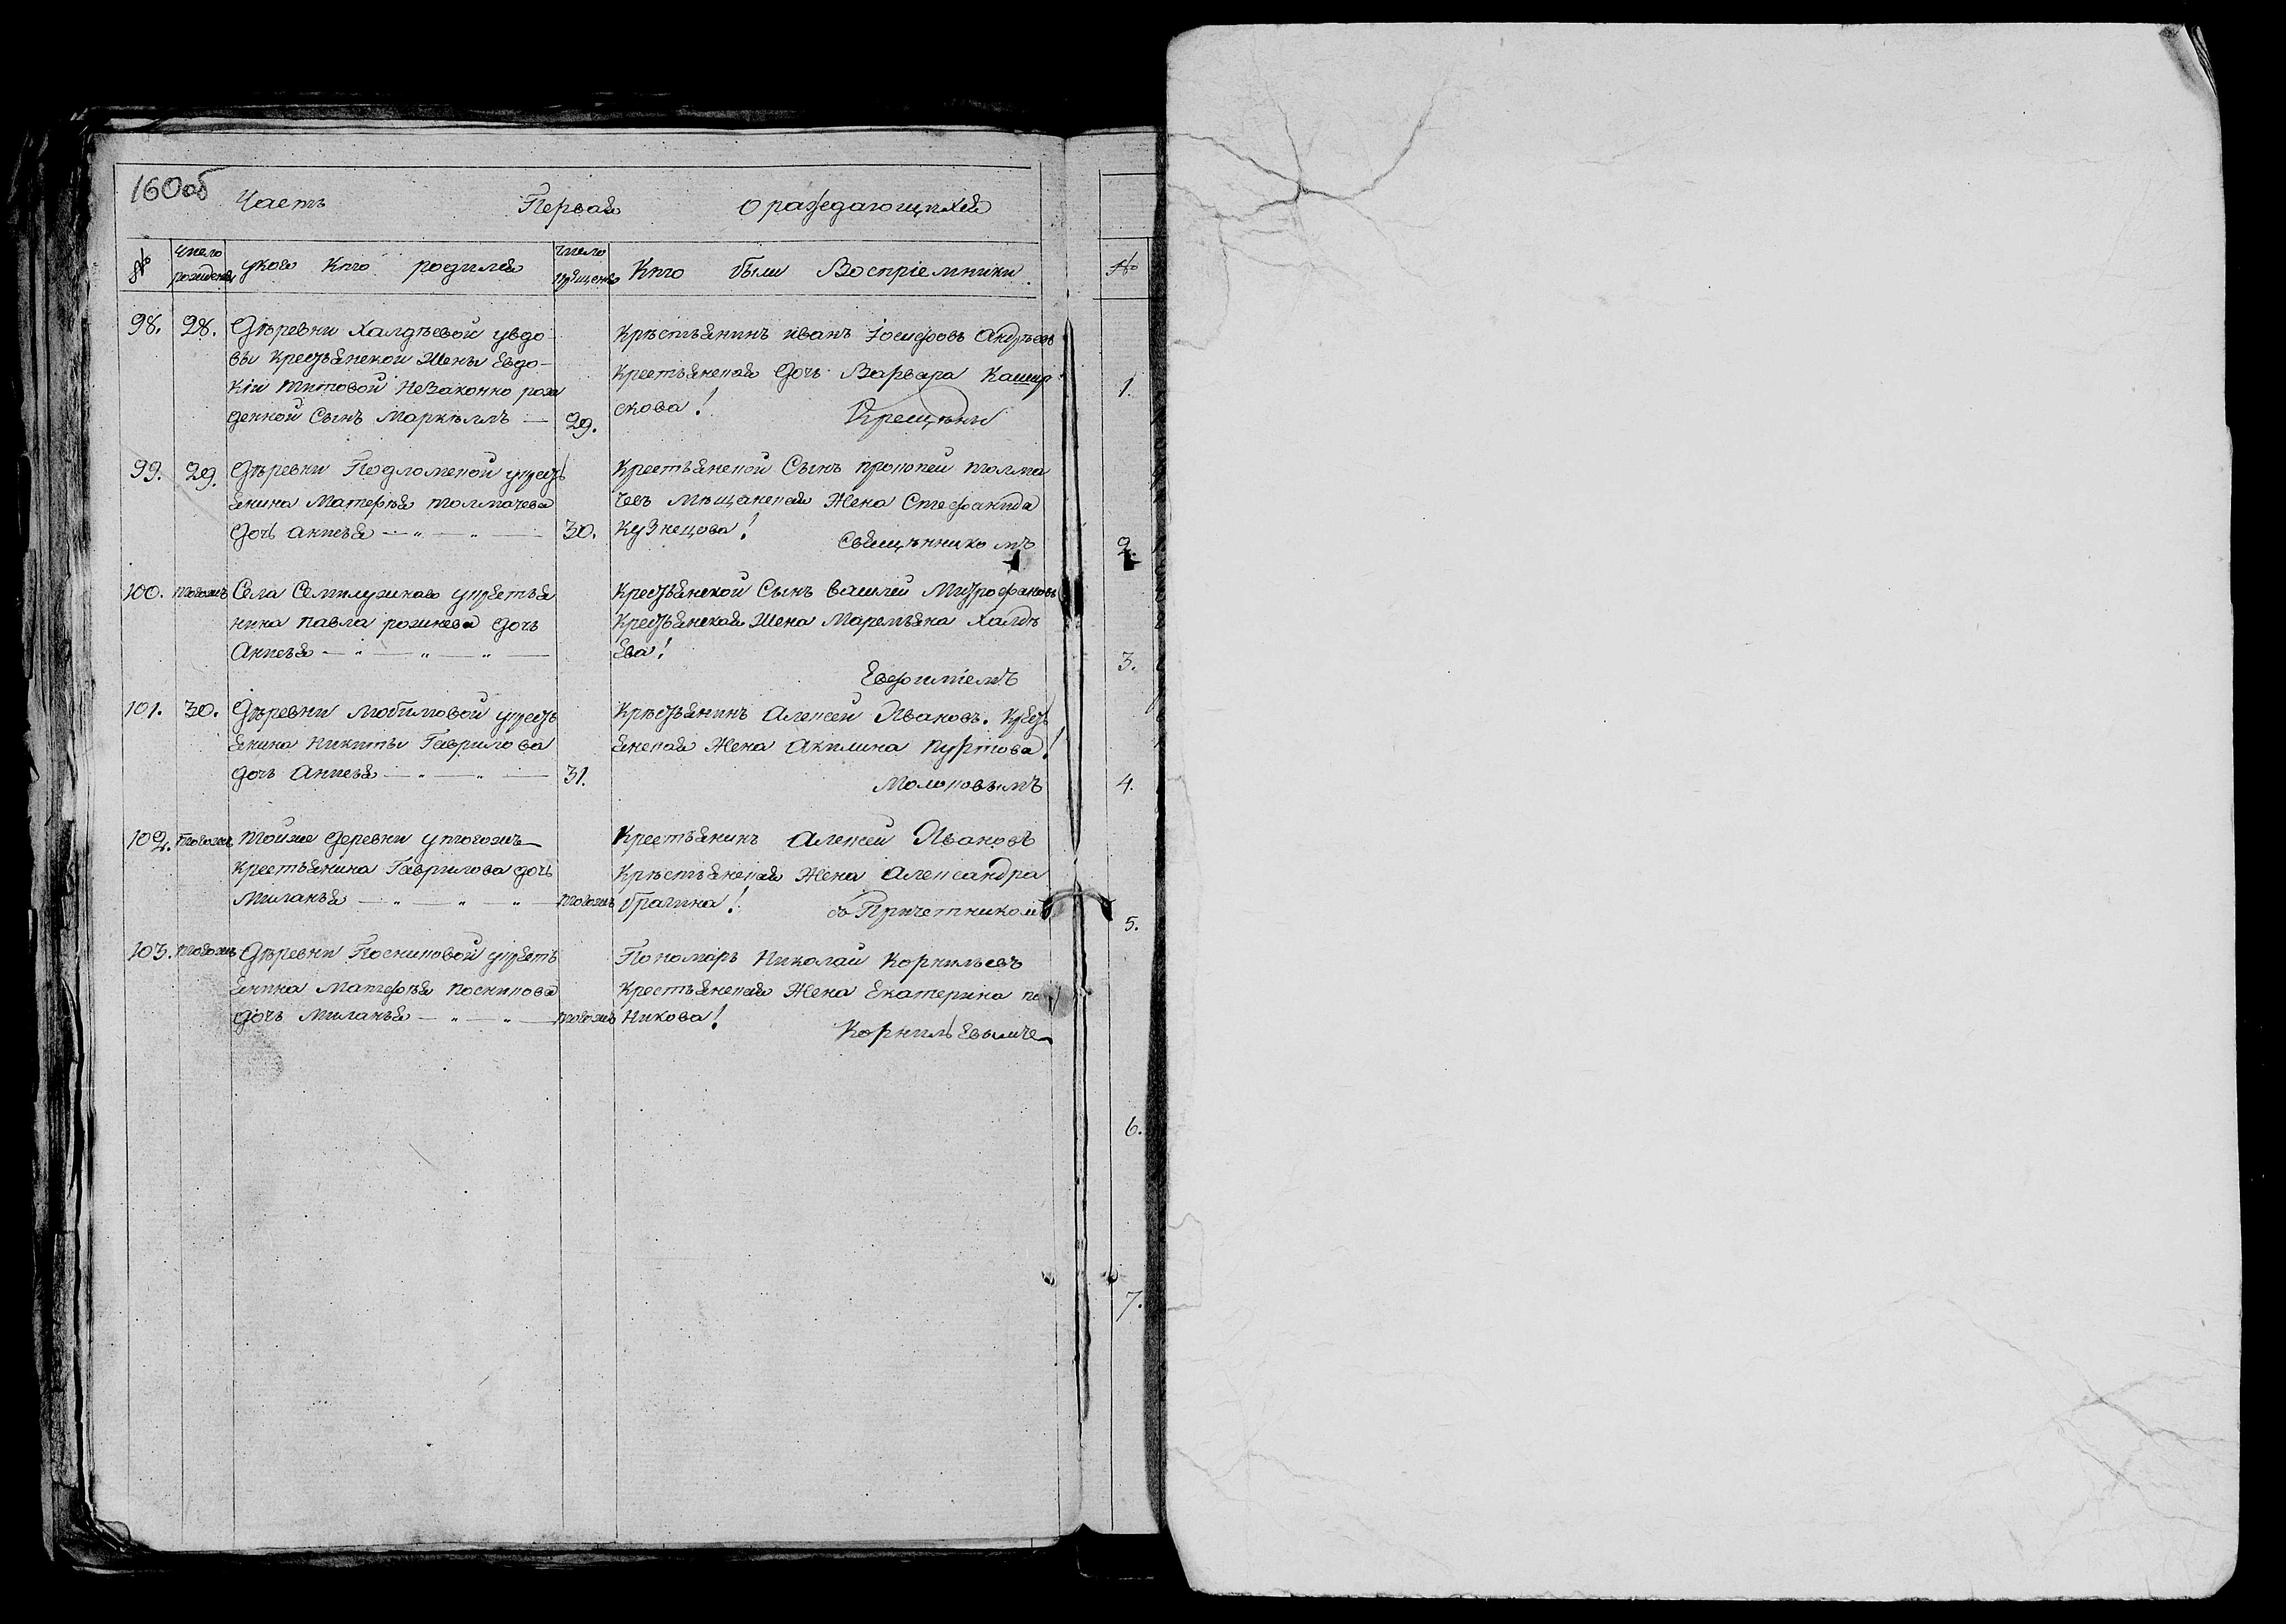 160 об
Часть Первая о раждающихся
№ число рождения укого кто родился число крещения Кто были Воспріемники
98. 28. Дѣревни Халдѣевой увдо-
вы крестьянской жены Евдо-
кіи Титовой незаконно рож
денной сынъ Маркѣлъ — 29.
Крѣстьянинъ иванъ Іосифовъ Андрѣевъ
крестьянская дочь Варвара Кашир
скова! Крещены
99. 29. Дѣревни Подломской укресть
янина Матфѣя Толмачева
дочь анисья — „ — „ — 30.
Крестьянской Сынъ прокопей толма
чевъ мѣщанская жена Стефанида
Кузнецова! Священникомъ
100. тогожъ Села Семилужнаго укрестья
нина павла рожнева дочь
Анисья — „ — „ — „ —
Крестьянской Сынъ василей Митрофановъ
Крестьянская жена Маремьяна Халдѣ
ева!
Евфиміемъ
101. 30. Дѣревни Любимовой укресть
янина никиты Гаврилова
дочь Анисья — „ — „ — 31.
Крѣстьянинъ Алексей Ивановъ. крест
янская жена Акилина пуртова!
Молоковымъ
102. тогожъ тойже деревни утогожъ
крестьянина Гаврилова дочь
Миланья — „ — „ — „ — тогожъ
Крестьянинъ Алексей Ивановъ
Крѣстьянская жена Александра
брагина! съ Причетникомъ
103. тогожъ Дѣревни Поскиповой укресть
янина Матфѣя поскипова
дочь Миланья — „ — „ — тогожъ
Пономарь Николай Корнильевъ
крестьянская жена Екатерина
никова! Корнильевымъ
№
1.
2.
3.
4.
5.
6.
7.